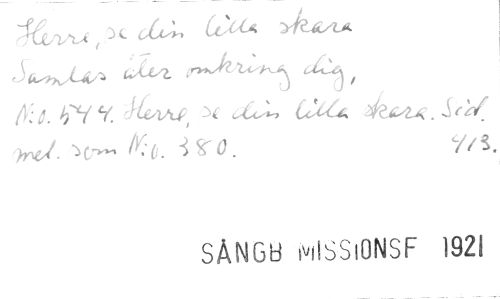 Herre, se din lilla skara
Samlas åter omkring dig,
N:o. 544. Herre, se din lilla skara. Sid.
mel. som N:o. 380. 413.
SÅNGB MISSIONSF 1921